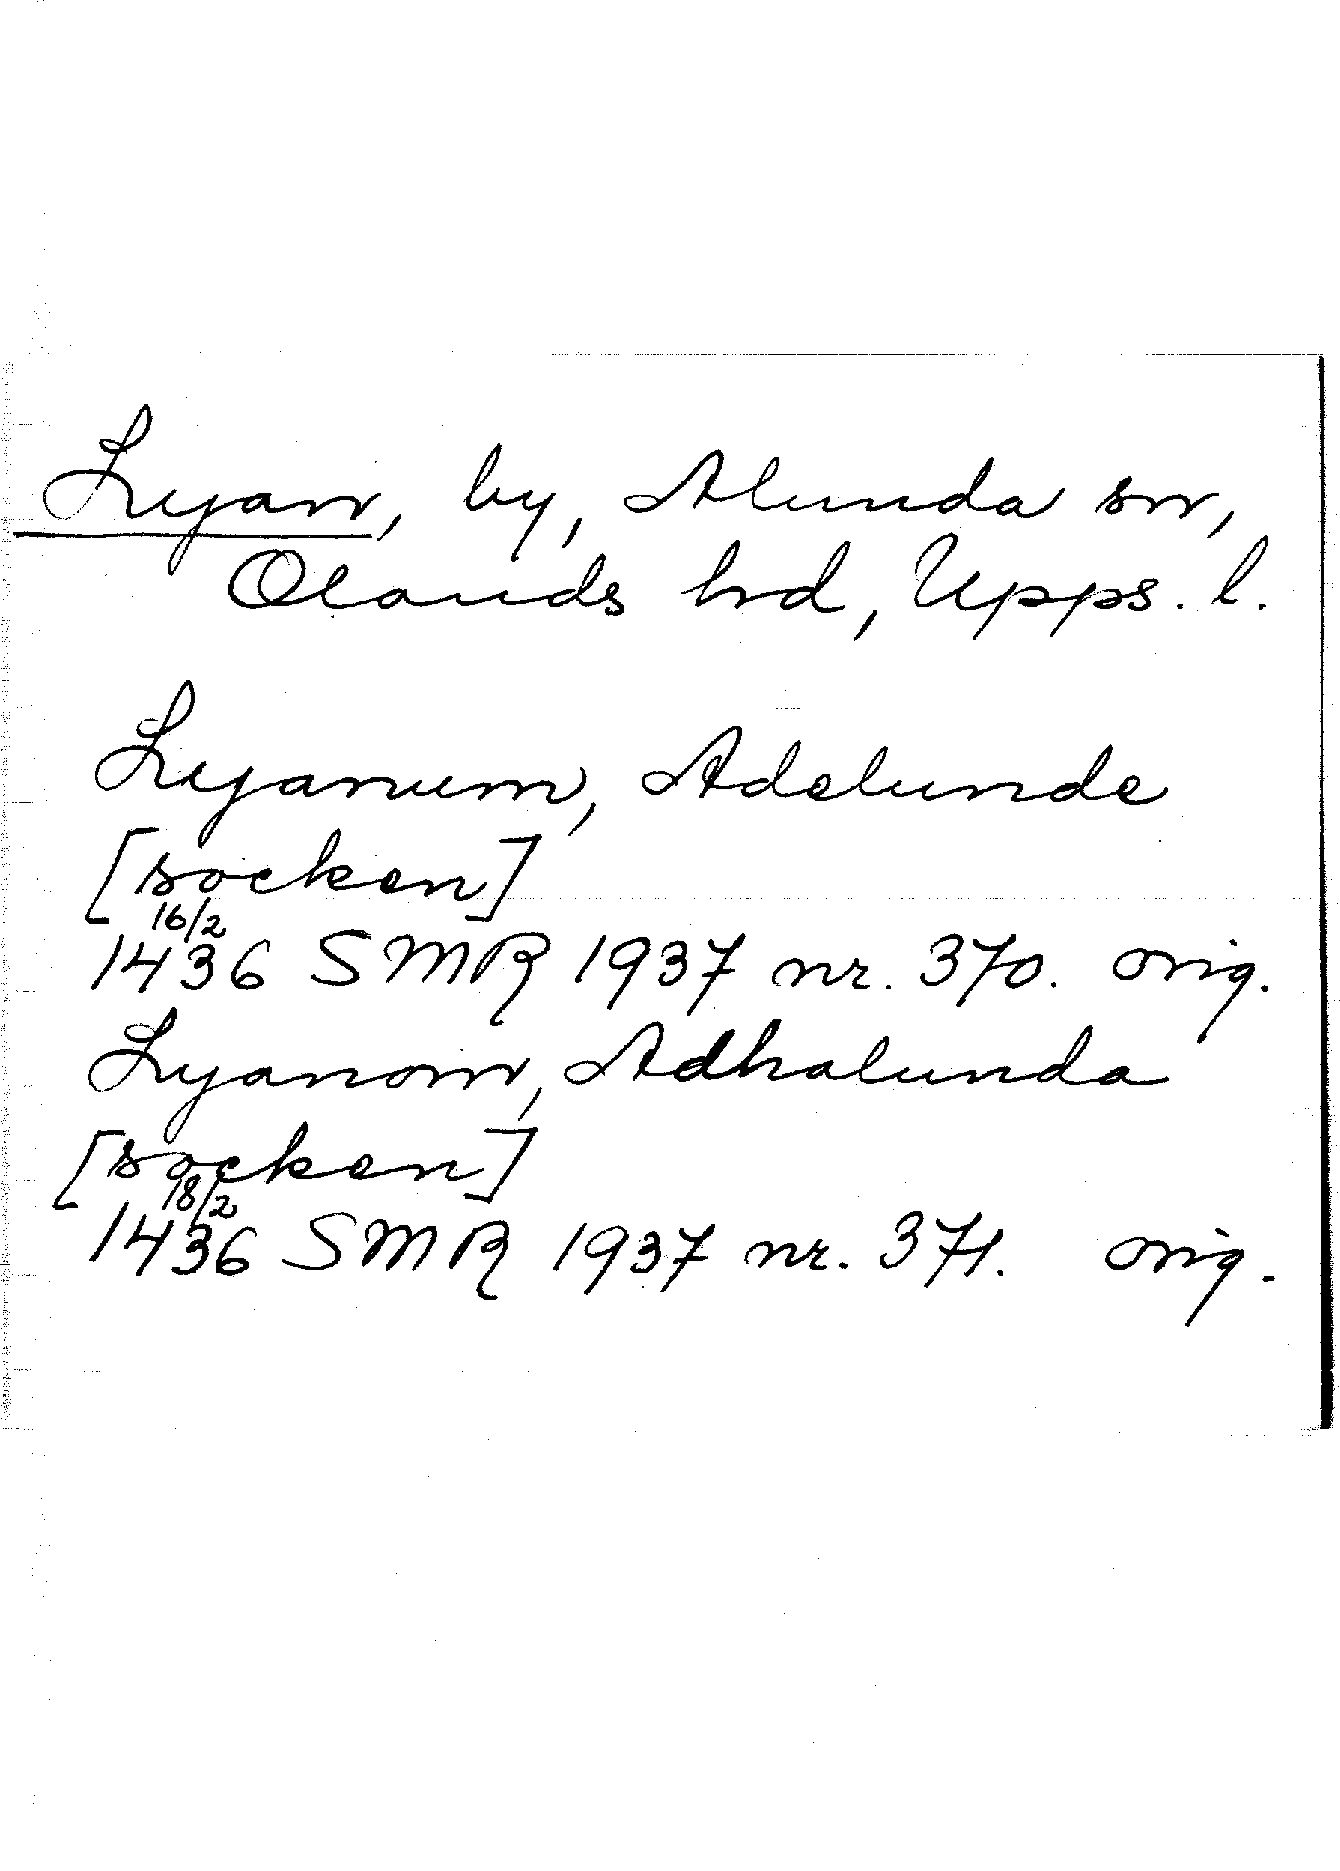 Lyan, by, Alunda sn,
Olands hrd, Upps. l.
Lyanum, Adelunde
[socken]
16/2
1436 SMR 1937 nr. 370. orig.
Lyanom, Adhalunda
[socken]
18/2
1436 SMR 1937 nr. 371. orig.